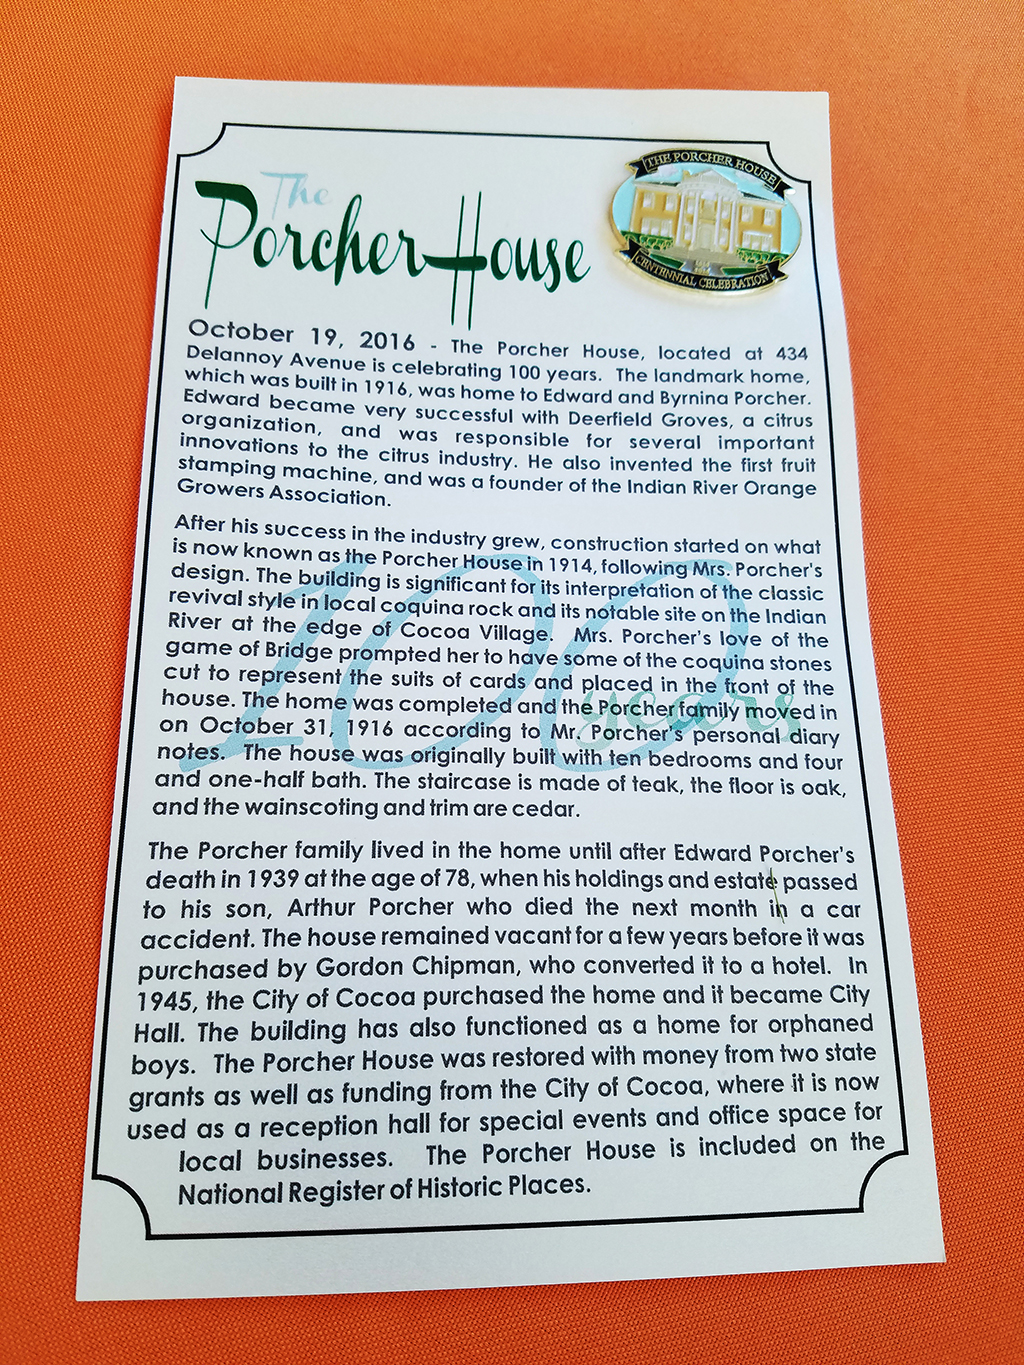 The
Porcher House
THE PORCHER HOUSE
CENTENNIAL CELEBRATION
October 19, 2016 - The Porcher House, located at 434
Delannoy Avenue is celebrating 100 years. The landmark home,
which was built in 1916, was home to Edward and Byrnina Porcher.
Edward became very successful with Deerfield Groves, a citrus
organization, and was responsible for several important
innovations to the citrus industry. He also invented the first fruit
stamping machine, and was a founder of the Indian River Orange
Growers Association.
After his success in the industry grew, construction started on what
is now known as the Porcher House in 1914, following Mrs. Porcher's
design. The building is significant for its interpretation of the classic
revival style in local coquina rock and its notable site on the Indian
River at the edge of Cocoa Village. Mrs. Porcher's love of the
game of Bridge prompted her to have some of the coquina stones
cut to represent the suits of cards and placed in the front of the
house. The home was completed and the Porcher family moved in
on October 31, 1916 according to Mr. Porcher's personal diary
notes. The house was originally built with ten bedrooms and four
and one-half bath. The staircase is made of teak, the floor is oak,
and the wainscoting and trim are cedar.
100
years
The Porcher family lived in the home until after Edward Porcher's
death in 1939 at the age of 78, when his holdings and estate passed
to his son, Arthur Porcher who died the next month in a car
accident. The house remained vacant for a few years before it was
purchased by Gordon Chipman, who converted it to a hotel. In
1945, the City of Cocoa purchased the home and it became City
Hall. The building has also functioned as a home for orphaned
boys. The Porcher House was restored with money from two state
grants as well as funding from the City of Cocoa, where it is now
used as a reception hall for special events and office space for
local businesses. The Porcher House is included on the
National Register of Historic Places.